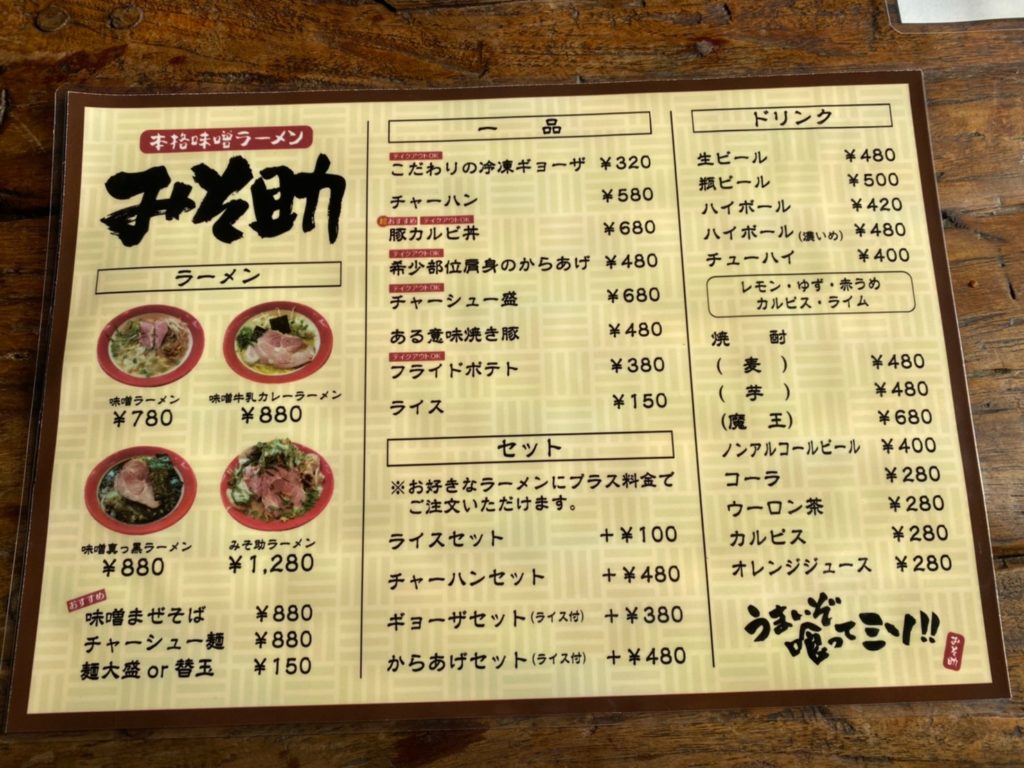 本格味噌ラーメン
みそ助
ラーメン
味噌ラーメン
¥780
味噌牛乳カレーラーメン
¥880
味噌真っ黒ラーメン
¥880
みそ助ラーメン
¥1,280
おすすめ
味噌まぜそば ¥880
チャーシュー麺 ¥880
麺大盛 or 替玉 ¥150
一品
テイクアウトOK
こだわりの冷凍ギョーザ ¥320
チャーハン ¥580
超おすすめ テイクアウトOK
豚カルビ丼 ¥680
テイクアウトOK
希少部位肩身のからあげ ¥480
テイクアウトOK
チャーシュー盛 ¥680
ある意味焼き豚 ¥480
テイクアウトOK
フライドポテト ¥380
ライス ¥150
セット
※お好きなラーメンにプラス料金で
ご注文いただけます。
ライスセット +¥100
チャーハンセット +¥480
ギョーザセット(ライス付) +¥380
からあげセット(ライス付) +¥480
ドリンク
生ビール ¥480
瓶ビール ¥500
ハイボール ¥420
ハイボール(濃いめ) ¥480
チューハイ ¥400
レモン・ゆず・赤うめ
カルピス・ライム
焼酎
(麦) ¥480
(芋) ¥480
(魔王) ¥680
ノンアルコールビール ¥400
コーラ ¥280
ウーロン茶 ¥280
カルピス ¥280
オレンジジュース ¥280
うまいぞ
喰ってミソ!!
みそ助